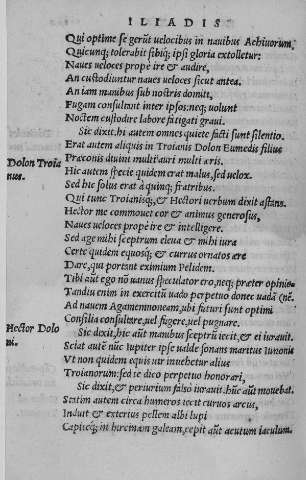 ILIADIS
Qui optime se gerũt uelocibus in nauibus Achiuorum,
Quicunq; tolerabit sibiq; ipsi gloria extolletur:
Naues ueloces prope ire & audire,
An custodiuntur naues ueloces sicut antea.
An iam manibus sub nostris domiti,
Fugam consultant inter ipsos: neq; uolunt
Noctem custodire labore fatigati graui.
Sic dixit, hi autem omnes quiete facti sunt silentio.
Erat autem aliquis in Troianis Dolon Eumedis filius
Dolon Troia
nus.
Præconis diuini multi auri multi æris.
Hic autem specie quidem erat malus, sed uelox.
Sed hic solus erat à quinq; fratribus.
Qui tunc Troianisq; & Hectori uerbum dixit astans.
Hector me commouet cor & animus generosus,
Naues ueloces prope ire & intelligere.
Sed age mihi sceptrum eleua & mihi iura
Certe quidem equosq; & currus ornatos ære
Dare, qui portant eximium Pelidem.
Tibi aũt ego nõ uanus speculator ero, neq; præter opinio-
Tandiu enim in exercitũ uado perpetuo donec uadã (nẽ.
Ad nauem Agamemnoneam, ubi futuri sunt optimi
Consilia consultare, uel fugere, uel pugnare.
Hector Dolo
ni.
Sic dixit, hic aũt manibus sceptrũ iecit, & ei iurauit.
Sciat autẽ nũc Iupiter ipse ualde sonans maritus Iunonis
Vt non quidem equis uir inuehetur alius
Troianorum: sed te dico perpetuo honorari,
Sic dixit, & periurium falso iurauit. hũc aũt mouebat.
Statim autem circa humeros iecit curuos arcus,
Induit & exterius pellem albi lupi
Capitiq; in hircinam galeam, cepit aũt acutum iaculum.